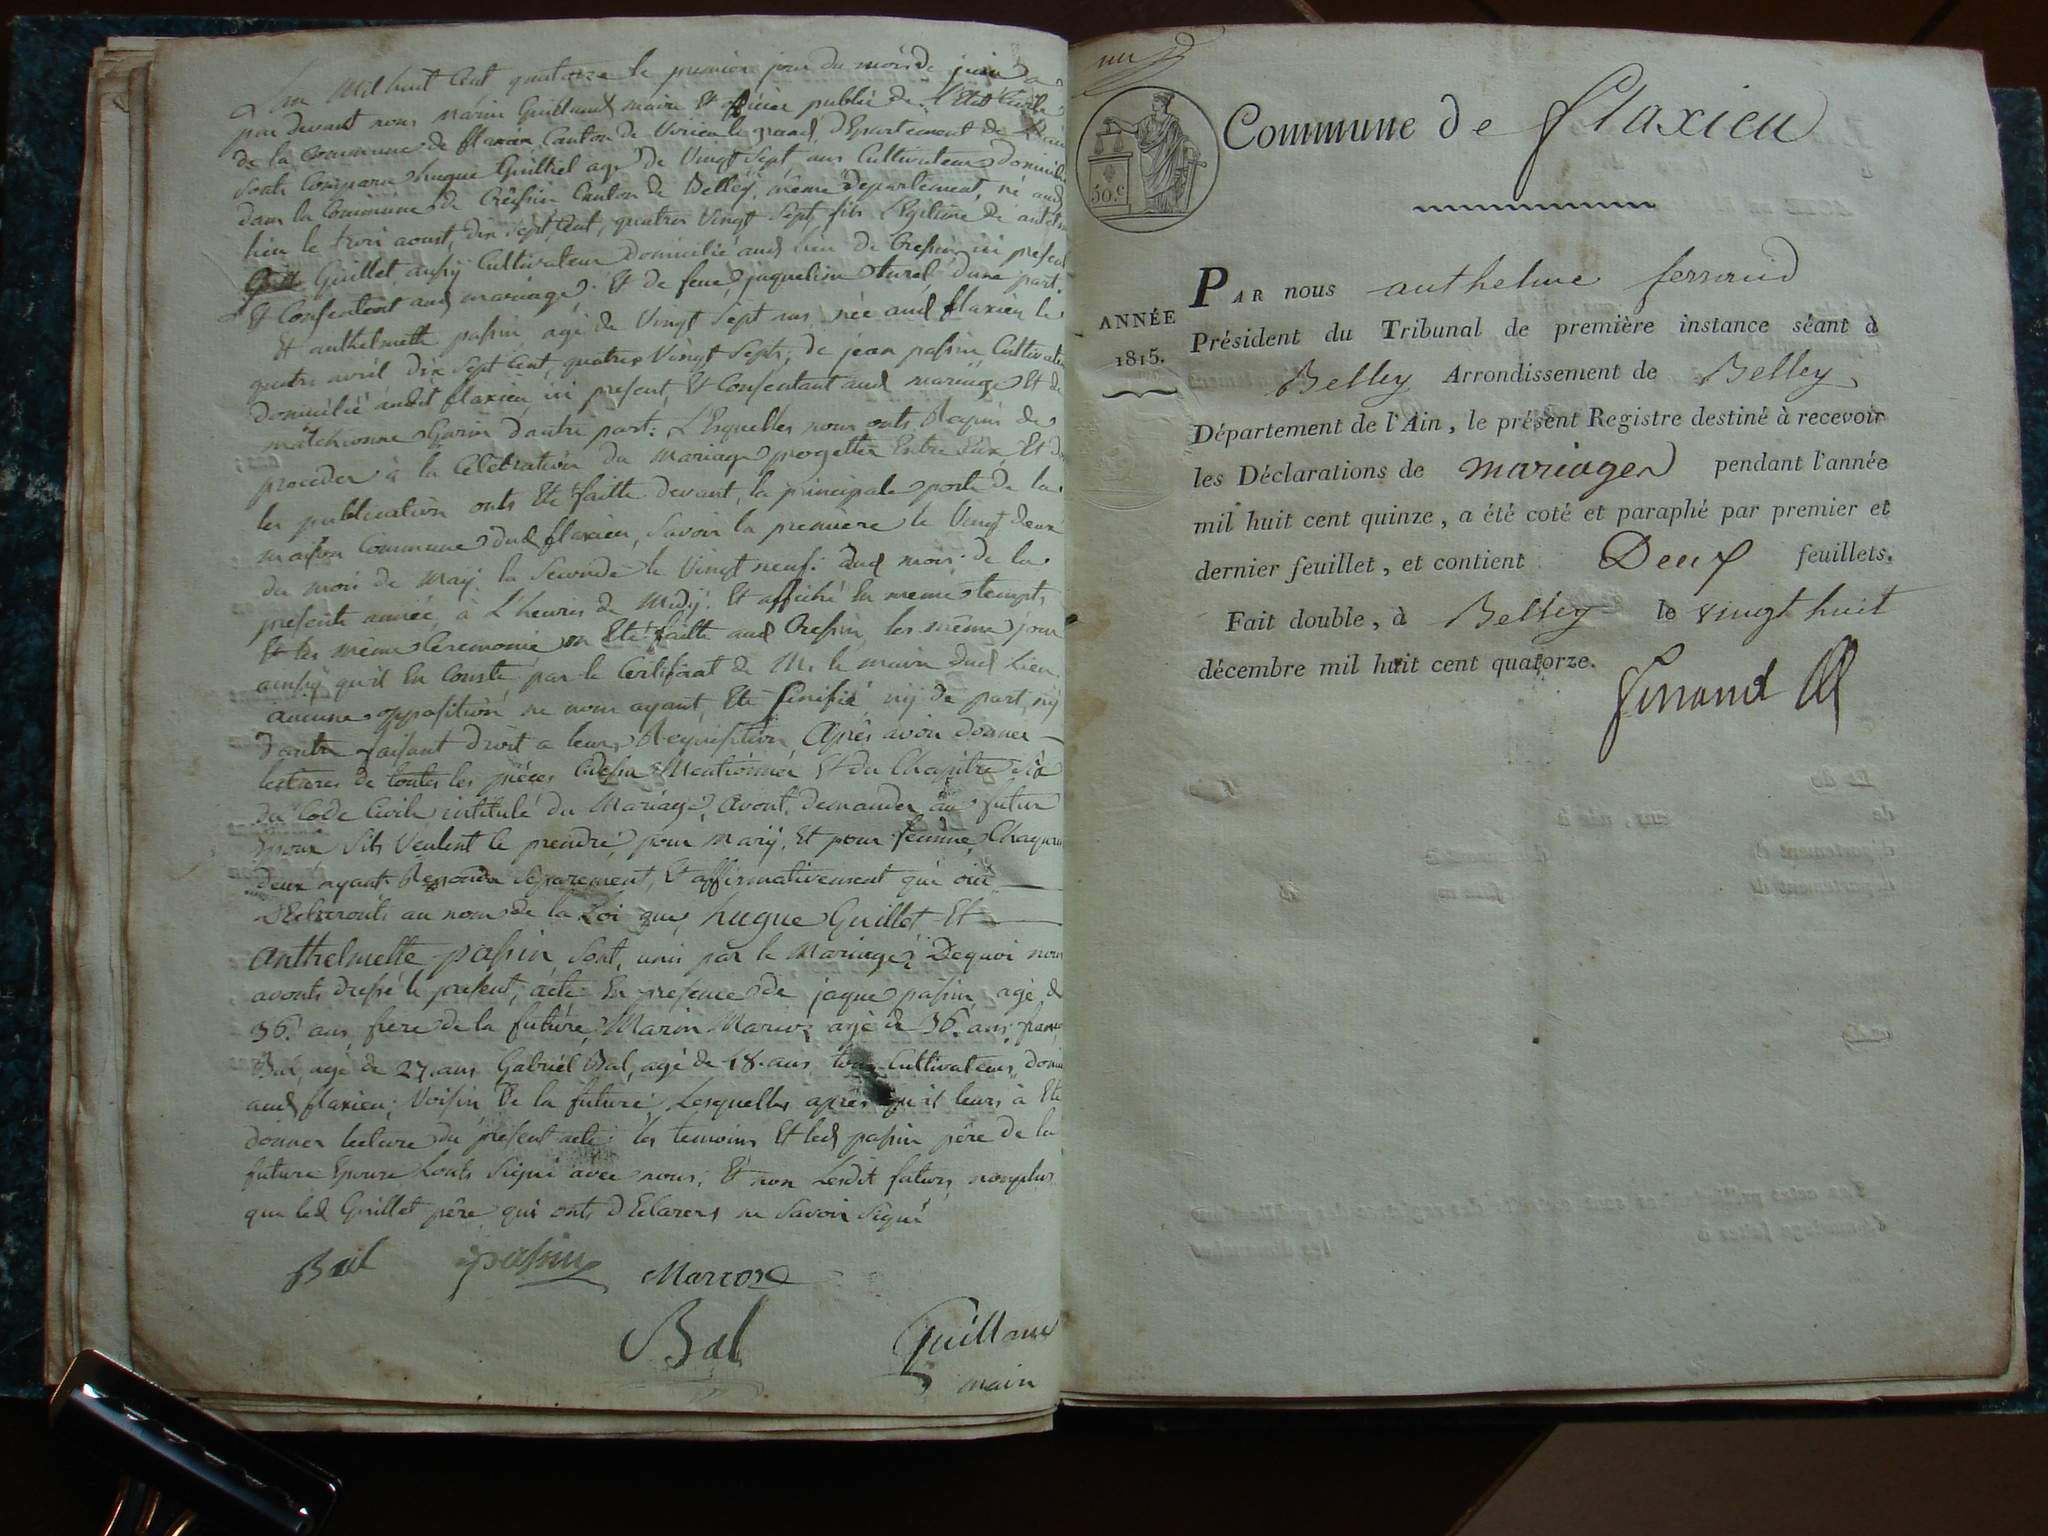 L'an Mil huit Cent quatorze le premier jour du mois de juin
par devant nous Marin Guillaud maire Et officier public de L'Etat Civile
de la Commune de flaxieu Canton de Virieu le grand, dEpartement de
sont Comparu hugue Guilliet agé de Vingt Sept ans Cultivateur
dans la Commune de Cressin Canton de Belley, même departement, né aud
lieu le trois aoust, dix Sept Cent, quatres Vingt Sept, fils Légitime de
Guillet, aussy Cultivateur domicilié aud lieu de Cressin, ici present
Et Consentent aud mariage. Et de feue jaqueline turel d'une part.
Et anthelmette passin agé de Vingt Sept ans née aud flaxieu le
quatre avril, dix Sept Cent, quatres Vingt Sept, de jean passin Cultivateur
domicilié audit flaxieu ici present, Et Consentant aud mariage Et de
Garin d'autre part. L'Esquelles nous onts Requis de
proceder à la Celebration du Mariage progetter Entre Eux, Et
les publication onts Eté faitte devant, la principale porte de la
maison Commune dud flaxieu, Savoir la premiere le Vingt deux
du mois de May la Seconde le Vingt neuf. dud mois de la
presente année, à L'heure de Midÿ. Et affiché En meme temps,
Et les même Ceremonie on Eté faitte aud Cressin, les même jour
ainsÿ qu'il En Conste par le Certificat de Mr le maire dud Lieu
aucune opposition ne nous ayant, Eté Sinifié nÿ de part, nÿ
d'autre faisant droit a leurs Requisition, Après avoir donner
lectures de toutes les pièces Cidessu Mentionnée Et du Chapitre six
du Code Civile intitulé du Mariage, Avont, demander au futur
Epoux Sils Veulent le prendre pour marÿ, Et pour femme, Chaqun
deux ayant Repondu Separement, Et affirmativement que oui
dEclaronts au nom de la Loi que, hugue Guillet Et
Anthelmette passin Sont, unis par le Mariage; Dequoi nous
avonts dressé le present, acte En presence de jaque passin agé de
36. ans, frere de la future, Marin Maroz agé de 36. ans,
Bal agé de 27. ans Gabriel Bal, agé de 48. ans tous Cultivateurs
aud flaxieu, Voisin de la future, Lesquelles après qu'il leurs à Eté
donner lecture du present acte. les temoins Et led passin père de la
future Epouse Lonts Signé avec nous, Et non Lesdit futurs nonplus
que led Guillet père qui onts dEclarers ne Savoir Signé
Bal passin Maroz
Bal Guillaud
maire
Commune de flaxieu
50.c
ANNÉE
1815.
PAR nous anthelme ferroud
Président du Tribunal de première instance séant à
Belley Arrondissement de Belley
Département de l'Ain, le présent Registre destiné à recevoir
les Déclarations de mariages pendant l'année
mil huit cent quinze, a été coté et paraphé par premier et
dernier feuillet, et contient Deux feuillets.
Fait double, à Belley le vingt huit
décembre mil huit cent quatorze.